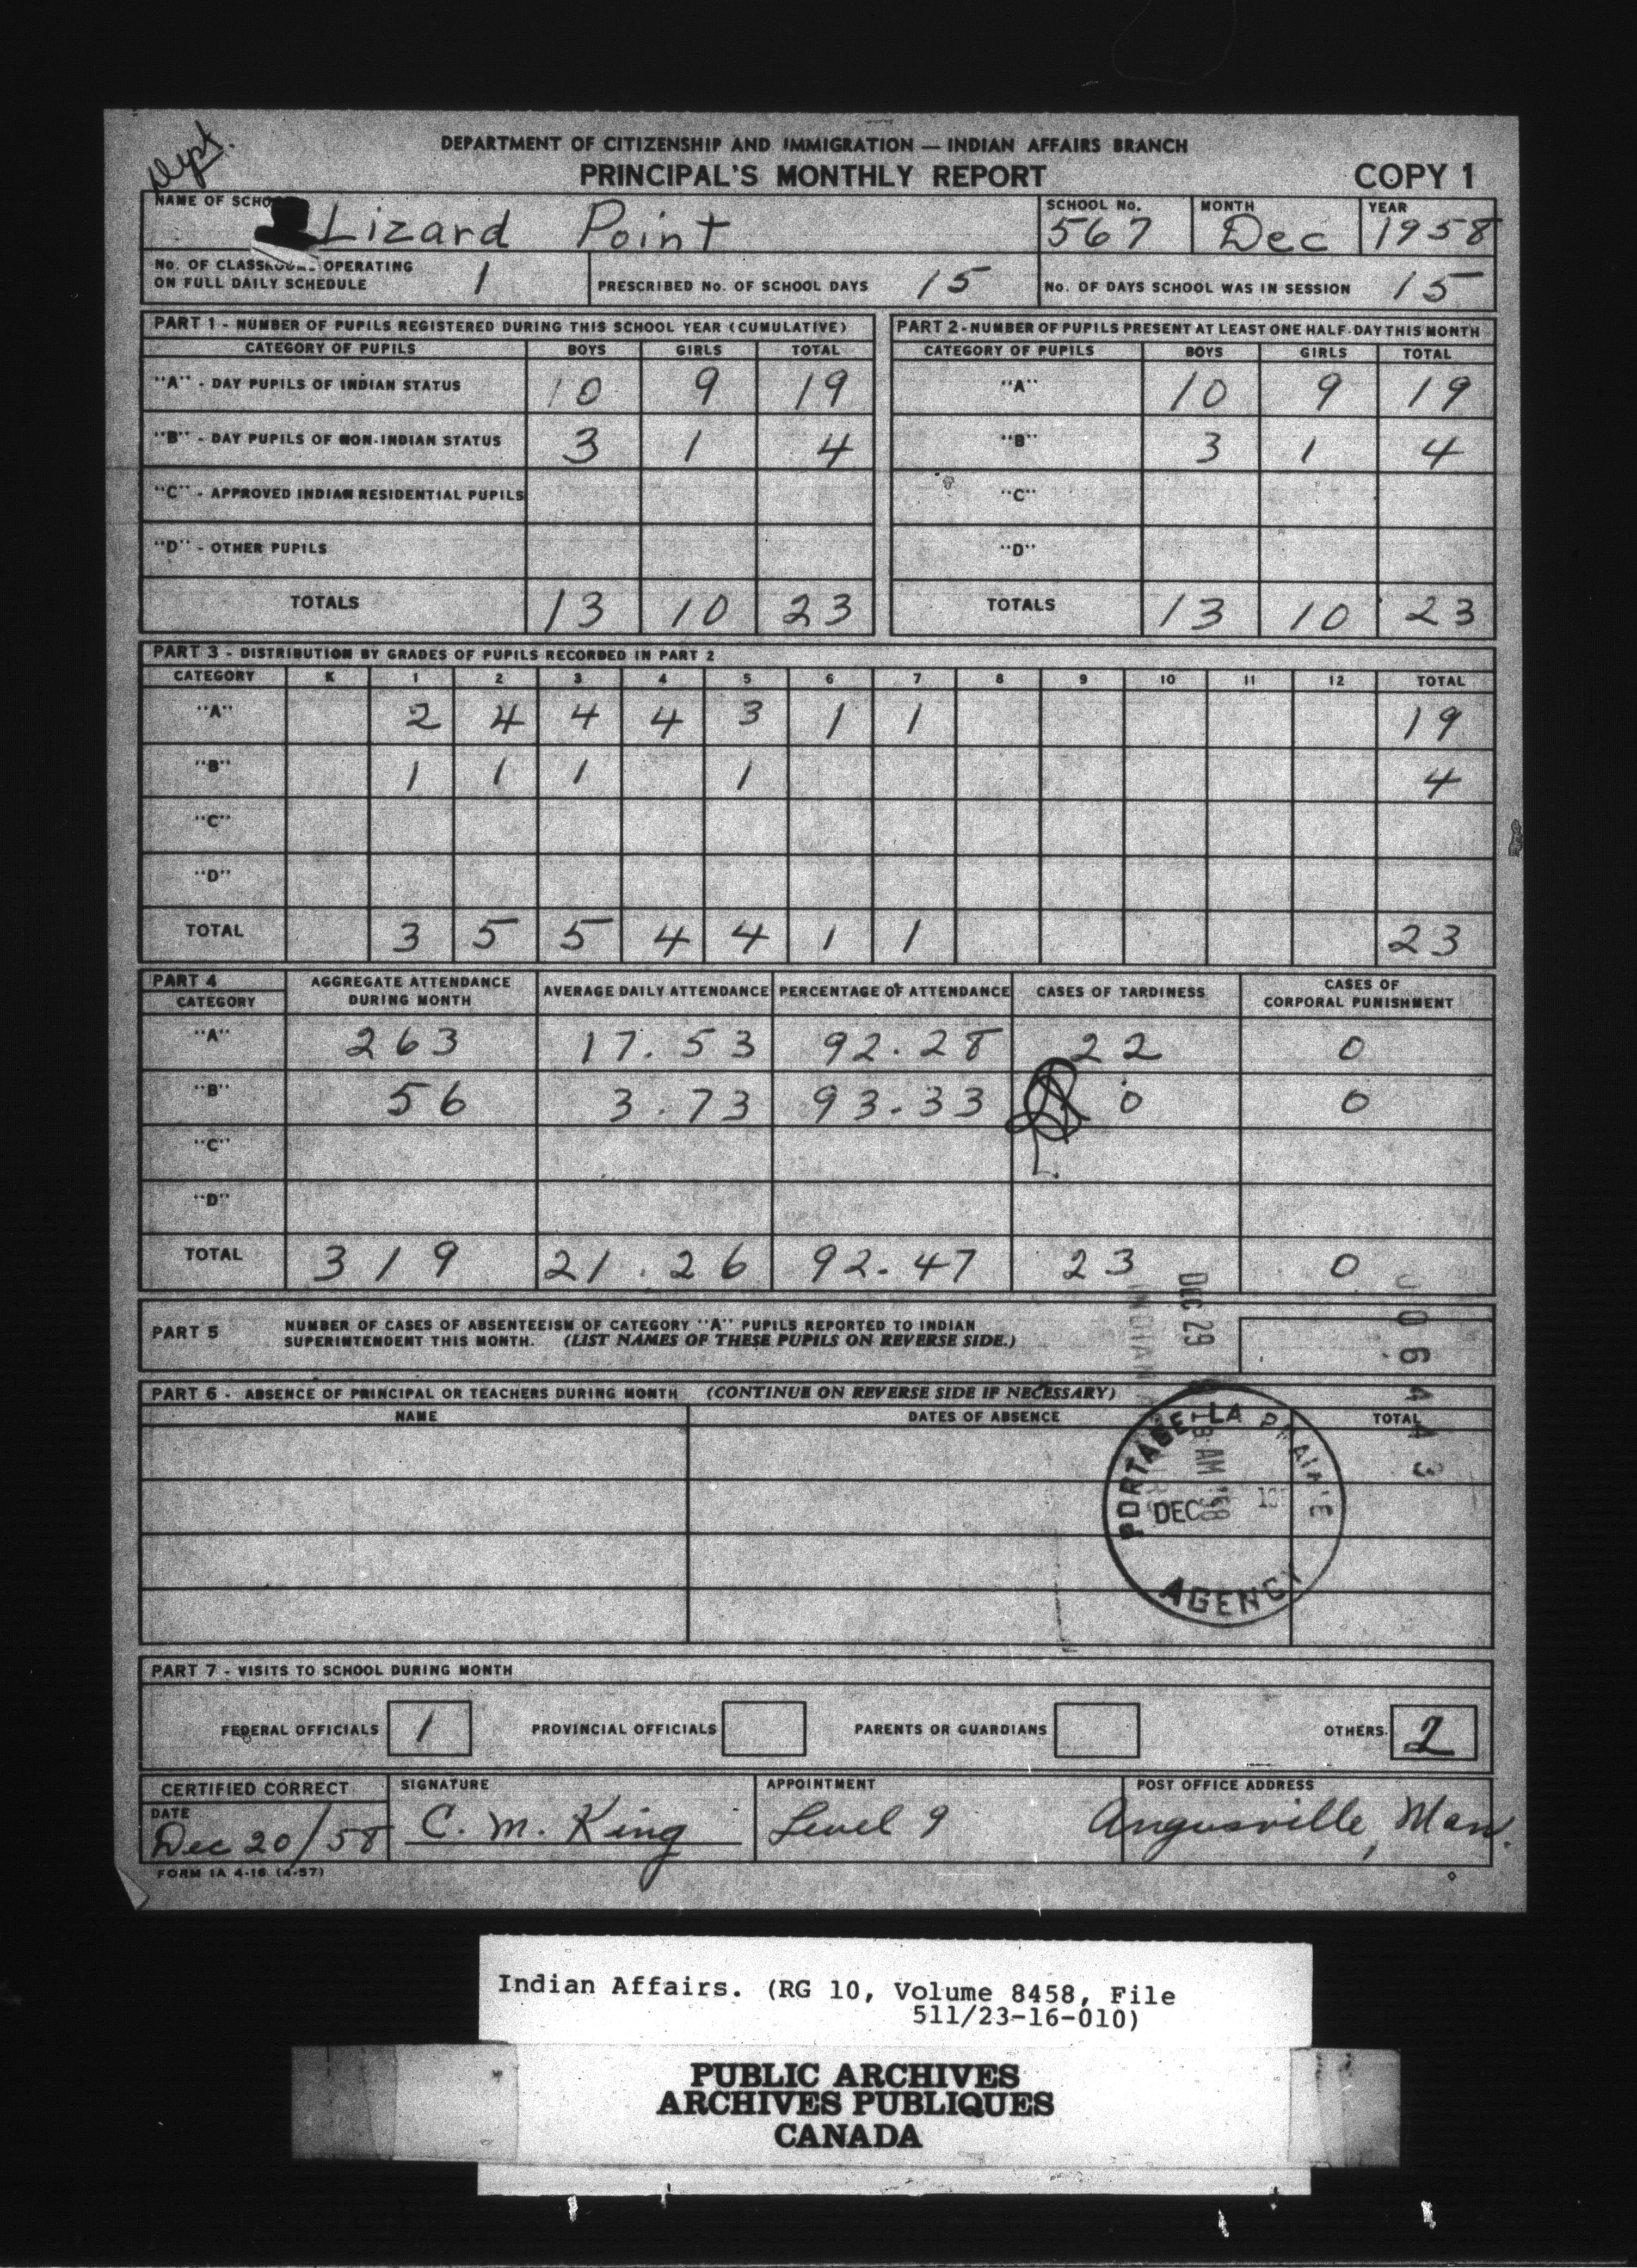 Dept.
DEPARTMENT OF CITIZENSHIP AND IMMIGRATION — INDIAN AFFAIRS BRANCH
PRINCIPAL'S MONTHLY REPORT COPY 1
NAME OF SCHO Lizard Point SCHOOL No. 567 MONTH Dec YEAR 1958
No. OF CLASSROOMS OPERATING ON FULL DAILY SCHEDULE 1 PRESCRIBED No. OF SCHOOL DAYS 15 No. OF DAYS SCHOOL WAS IN SESSION 15
PART 1 - NUMBER OF PUPILS REGISTERED DURING THIS SCHOOL YEAR (CUMULATIVE)
CATEGORY OF PUPILS BOYS GIRLS TOTAL
"A" - DAY PUPILS OF INDIAN STATUS 10 9 19
"B" - DAY PUPILS OF NON-INDIAN STATUS 3 1 4
"C" - APPROVED INDIAN RESIDENTIAL PUPILS
"D" - OTHER PUPILS
TOTALS 13 10 23
PART 2 - NUMBER OF PUPILS PRESENT AT LEAST ONE HALF-DAY THIS MONTH
CATEGORY OF PUPILS BOYS GIRLS TOTAL
"A" 10 9 19
"B" 3 1 4
"C"
"D"
TOTALS 13 10 23
PART 3 - DISTRIBUTION BY GRADES OF PUPILS RECORDED IN PART 2
CATEGORY K 1 2 3 4 5 6 7 8 9 10 11 12 TOTAL
"A" 2 4 4 4 3 1 1 19
"B" 1 1 1 1 4
"C"
"D"
TOTAL 3 5 5 4 4 1 1 23
PART 4
CATEGORY AGGREGATE ATTENDANCE DURING MONTH AVERAGE DAILY ATTENDANCE PERCENTAGE OF ATTENDANCE CASES OF TARDINESS CASES OF CORPORAL PUNISHMENT
"A" 263 17.53 92.28 22 0
"B" 56 3.73 93.33 0 0
"C"
"D"
TOTAL 319 21.26 92.47 23 0
PART 5 NUMBER OF CASES OF ABSENTEEISM OF CATEGORY "A" PUPILS REPORTED TO INDIAN
SUPERINTENDENT THIS MONTH. (LIST NAMES OF THESE PUPILS ON REVERSE SIDE.)
DEC 29
INDIAN
AM '58
PART 6 - ABSENCE OF PRINCIPAL OR TEACHERS DURING MONTH (CONTINUE ON REVERSE SIDE IF NECESSARY)
NAME DATES OF ABSENCE TOTAL
PORTAGE LA PRAIRIE
DEC
AGENCY
PART 7 - VISITS TO SCHOOL DURING MONTH
FEDERAL OFFICIALS 1 PROVINCIAL OFFICIALS PARENTS OR GUARDIANS OTHERS 2
CERTIFIED CORRECT SIGNATURE APPOINTMENT POST OFFICE ADDRESS
DATE
Dec 20/58 C. M. King Level 9 Angusville, Man.
FORM IA 4-16 (4-57)
Indian Affairs. (RG 10, Volume 8458, File
511/23-16-010)
PUBLIC ARCHIVES
ARCHIVES PUBLIQUES
CANADA